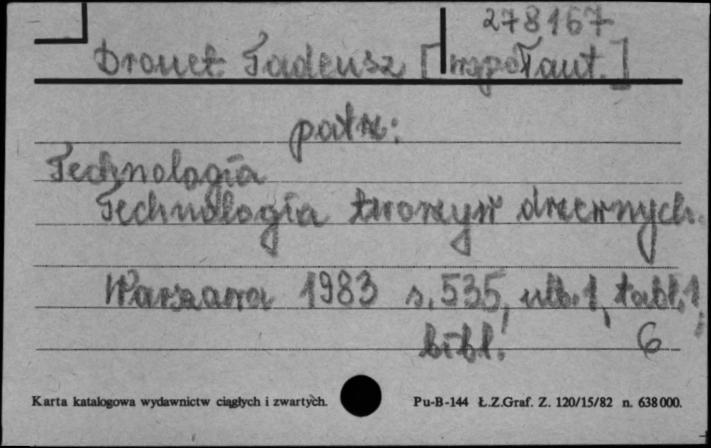 278167
Drouet Tadeusz [współaut.]
patrz:
Technologia
Technologia tworzyw drzewnych.
Warszawa 1983 s. 535, nlb. 1, tabl. 1,
bibl. 6
Karta katalogowa wydawnictw ciągłych i zwartych. Pu-B-144 Ł.Z.Graf. Z. 120/15/82 n. 638 000.